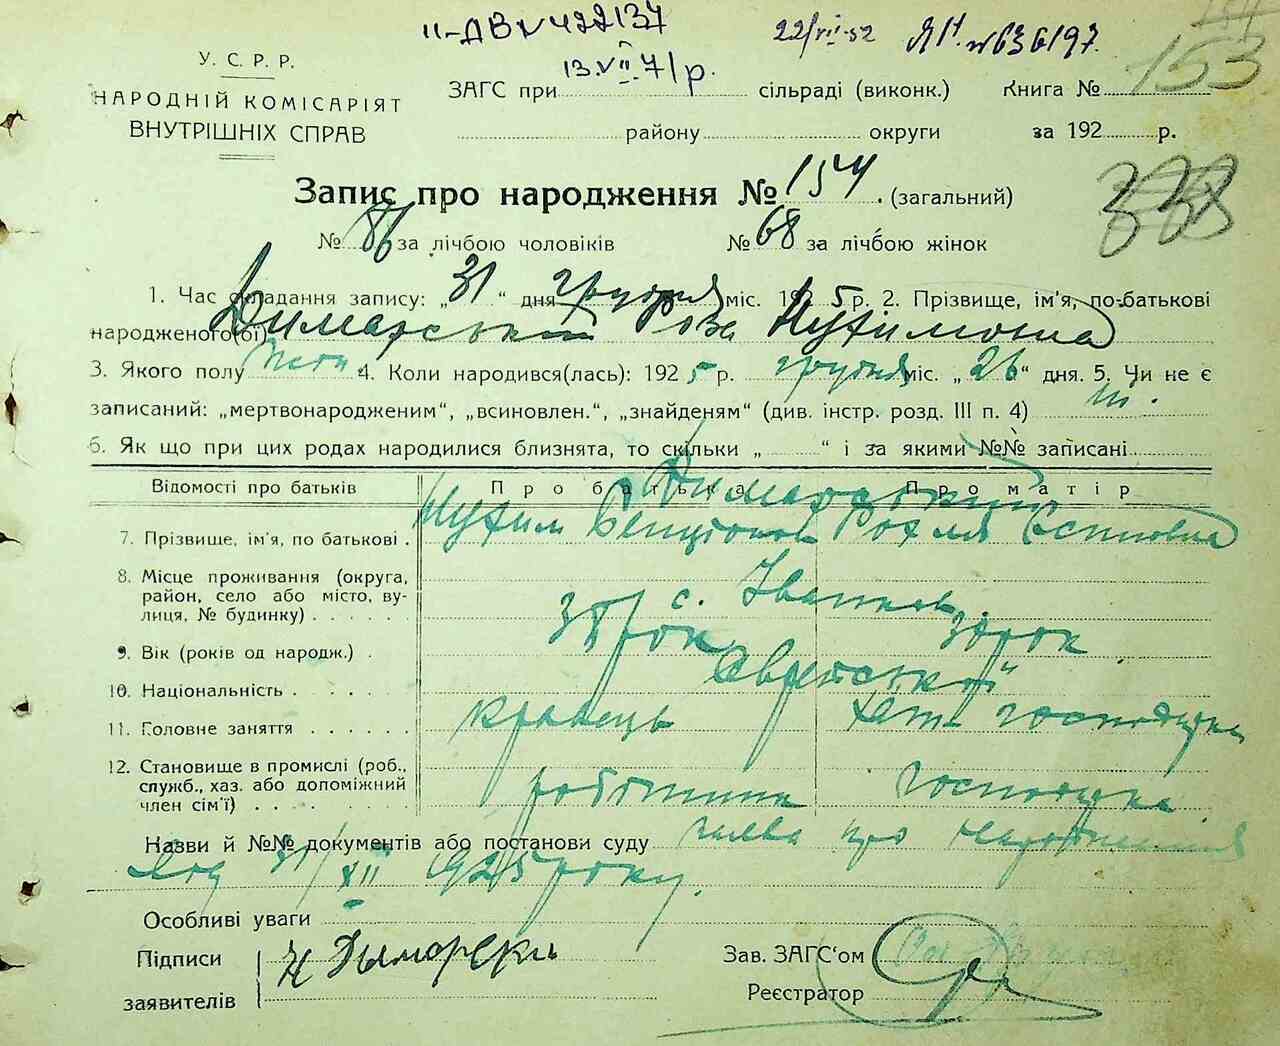 ІІ-ДВ № 422137
22/VII-52 ЯП. № 636197.
153
13.VII.71 р.
У. С. Р. Р.
НАРОДНІЙ КОМІСАРІЯТ
ВНУТРІШНІХ СПРАВ
ЗАГС при сільраді (виконк.) Книга №
району округи за 192 р.
Запис про народження № 154. (загальний)
№ 86 за лічбою чоловіків № 68 за лічбою жінок
1. Час складання запису: „31“ дня грудня міс. 1925 р. 2. Прізвище, ім'я, по-батькові
народженого(ої) Димарська Роза Нухимовна
3. Якого полу жін. 4. Коли народився(лась): 1925 р. грудня міс. „26“ дня. 5. Чи не є
записаний: „мертвонародженим“, „всиновлен.“, „знайденям“ (див. інстр. розд. III п. 4) ні.
6. Як що при цих родах народилися близнята, то скільки „ “ і за якими №№ записані
Відомості про батьків Про батька Про матір
Димарський
7. Прізвище, ім'я, по батькові . Нухим Бенціонов Рохля
8. Місце проживання (округа,
район, село або місто, ву-
лиця, № будинку) . . . . . . с. Іванков.
9. Вік (років од народж.) . рок рок
10. Національність . . . . . . Єврейський
11. Головне заняття . . . . . . кравець хатн господарка
12. Становище в промислі (роб.,
служб., хаз. або допоміжний
член сім'ї) . . . . . . робітник господарка
Назви й №№ документів або постанови суду заява про народження
від 31/XII 1925 року.
Особливі уваги
Підписи Н Дыморски Зав. ЗАГС'ом
заявителів Реєстратор